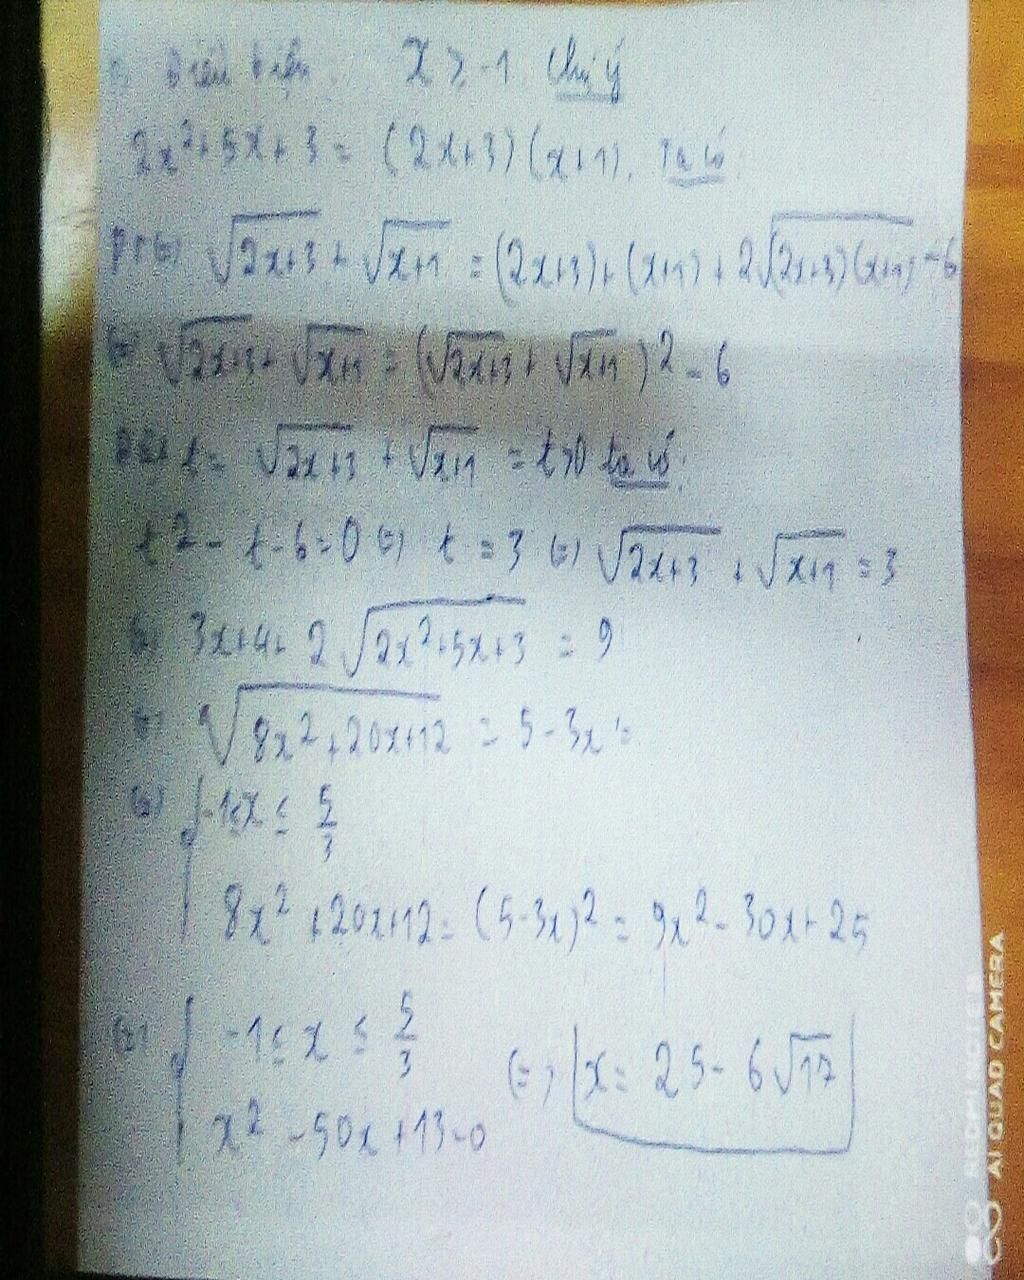 Điều kiện. x ≥ -1. Chú ý
2x²+5x+3 = (2x+3)(x+1). Ta có
pt ⇔ √(2x+3) + √(x+1) = (2x+3)+(x+1)+2√((2x+3)(x+1)) -6
⇔ √(2x+3) + √(x+1) = (√(2x+3) + √(x+1))² - 6
Đặt t = √(2x+3) + √(x+1) = t>0 ta có:
t² - t - 6 = 0 ⇔ t = 3 ⇔ √(2x+3) + √(x+1) = 3
⇔ 3x+4+ 2√(2x²+5x+3) = 9
⇔ √(8x²+20x+12) = 5-3x
⇔ { -1≤x ≤ 5/3
8x²+20x+12 = (5-3x)² = 9x²-30x+25
⇔ { -1≤ x ≤ 5/3
x² -50x+13=0 ⇔ x = 25-6√17
REDMI NOTE 8
AI QUAD CAMERA